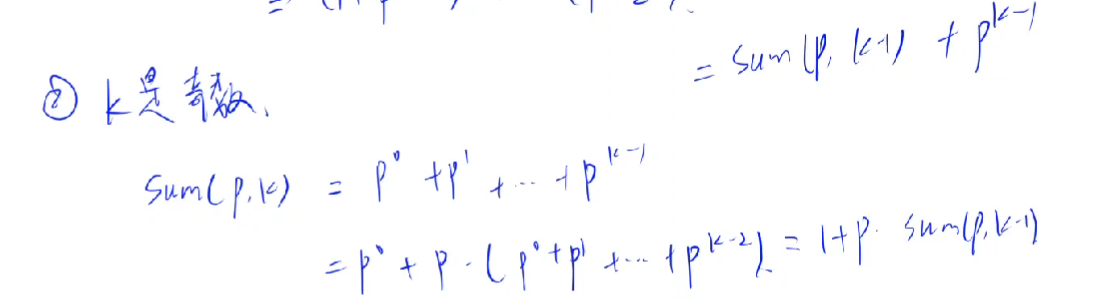 = sum(p, k-1) + p^{k-1}
② k是奇数、
Sum(p,k) = p^0 + p^1 + ... + p^{k-1}
= p^0 + p · (p^0 + p^1 + ... + p^{k-2}) = 1+p · sum(p,k-1)